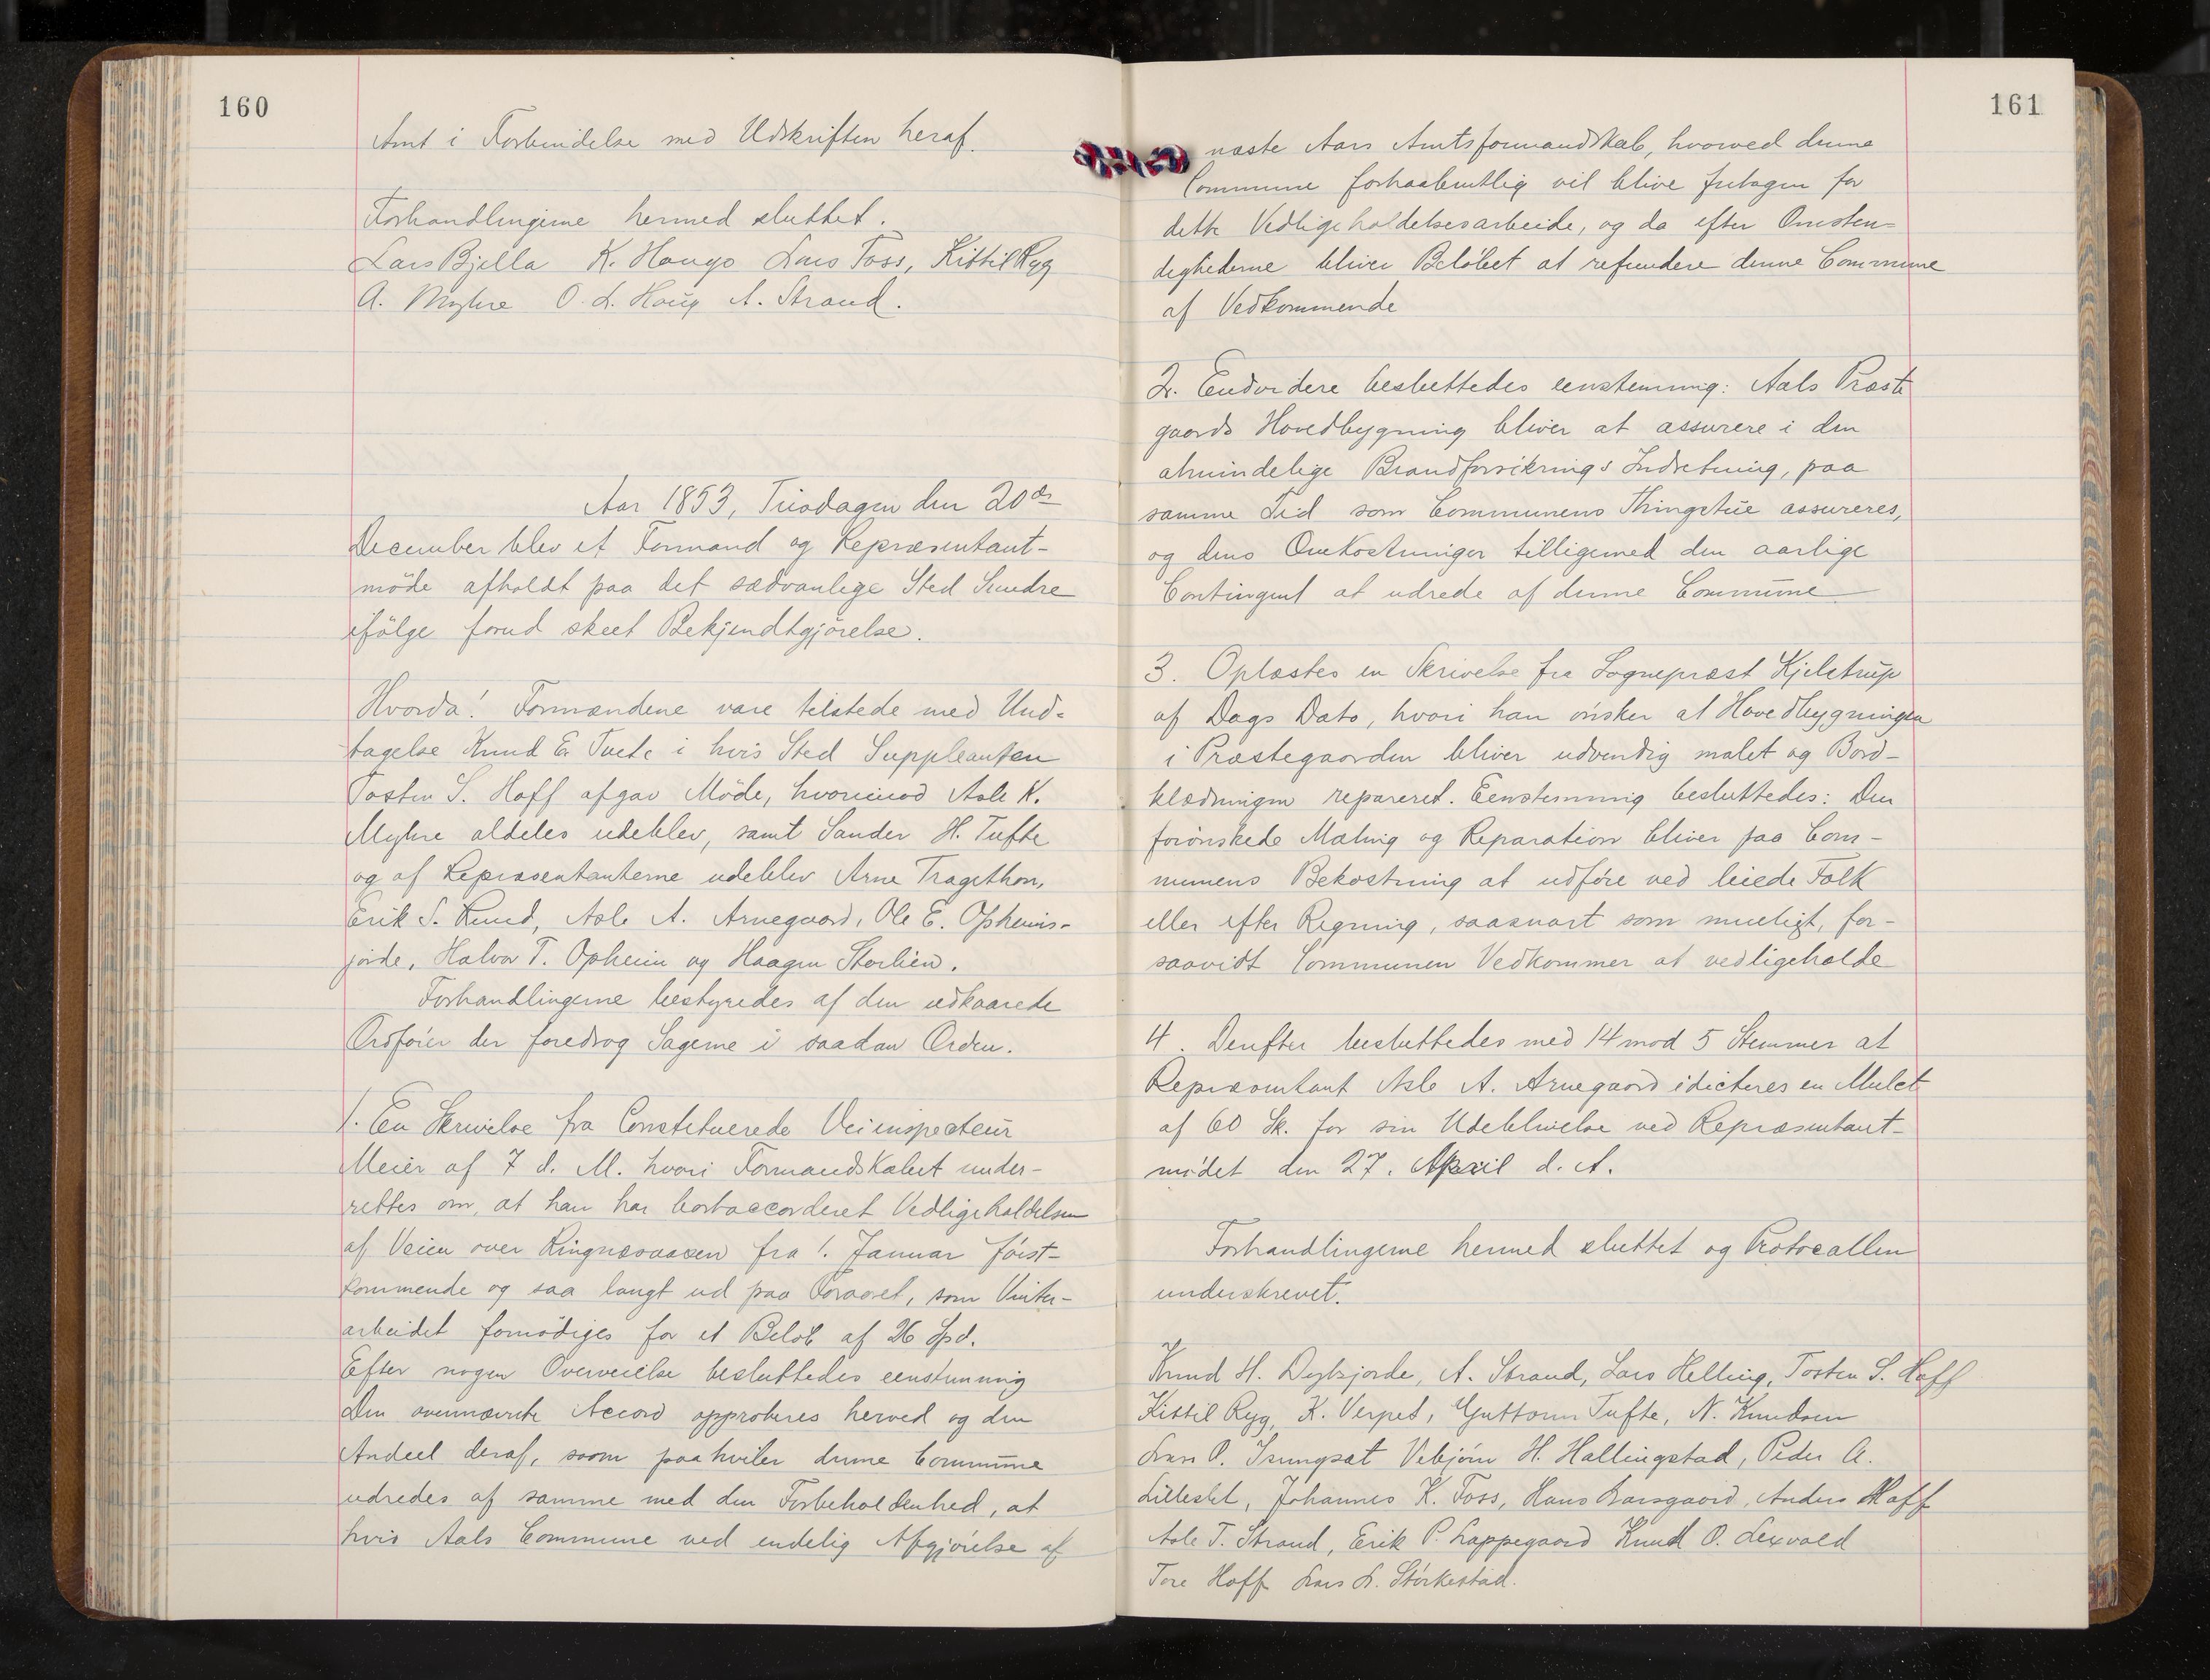 160
Amt i Forbindelse med Udskriften heraf.
Forhandlingerne hermed sluttet.
Lars Bjella K. Haugo Lars Foss, Kittil Ryg
A. Myhre O. L. Haug A. Strand.
Aar 1853, Tirsdagen den 20de
December blev et Formand og Repræsentant-
möde afholdt paa det sædvanlige Sted Sundre
ifölge forud skeet Bekjendtgjörelse.
Hvorda! Formændene vare tilstede med Und-
tagelse Knud E. Tvete i hvis Sted Suppleanten
Tosten S. Hoff afgav Möde, hvorimod Asle K.
Myhre aldeles udeblev, samt Sander H. Tufte
og af Repræsentanterne udeblev Arne Tragethon,
Erik S. Rund, Asle A. Arnegaard, Ole E. Opheims-
jorde, Halvor T. Opheim og Haagen Storlien.
Forhandlingerne bestyredes af den udkaarede
Ordförer der foredrog Sagerne i saadan Orden.
1. En Skrivelse fra Constituerede Veiinspecteur
Meier af 7 d. M. hvori Formandskabet under-
rettes om, at han har bortaccorderet Vedligeholdelsen
af Veien over Ringnesaasen fra 1. Januar först-
kommende og saa langt ud paa Foraaret, som Vinter-
arbeidet fornödiges for et Belöb af 26 Spd.
Efter nogen Overveielse besluttedes eenstemmig
Den ovennævnte Accord approberes herved og den
Andeel deraf, som paahviler denne Commune
udredes af samme med den Forbeholdenhed, at
hvis Aals Commune ved endelig Afgjörelse af
161
næste Aars Amtsformandskab, hvorved denne
Commune forhaabentlig vil blive fritagen for
dette Vedligeholdelsesarbeide, og da efter Omsten-
dighederne bliver Belöbet at refundere denne Commune
af Vedkommende
2. Endvidere besluttedes eenstemmig: Aals Præste
gaards Hovedbygning bliver at assurere i den
almindelige Brandforsikrings Indretning, paa
samme Tid som Communens Thingstue assureres,
og dens Omkostninger tilligemed den aarlige
Contingent at udrede af denne Commune
3. Oplæstes en Skrivelse fra Sognepræst Kjelstrup
af Dags Dato, hvori han önsker at Hovedbygningen
i Præstegaarden bliver udvendig malet og Bord-
klædningen repareret. Eenstemmig besluttedes: Den
forönskede Maling og Reparation bliver paa Com-
munens Bekostning at udföre ved leiede Folk
eller efter Regning, saasnart som mueligt, for-
saavidt Communen Vedkommer at vedligeholde
4. Derefter besluttedes med 14 mod 5 Stemmer at
Repræsentant Asle A. Arnegaard idicteres en Mulct
af 60 Sk. for sin Udeblivelse ved Repræsentant-
mödet den 27. April d. A.
Forhandlingerne hermed sluttet og Protocollen
underskrevet.
Knud H. Dybsjorde, A. Strand, Lars Helling, Tosten S. Hoff
Kittil Ryg, K. Verpet, Guttorm Tufte, N. Knudsen
Lars O. Vebjörn H. Hallingstad, Peder A.
Lilleslet, Johannes K. Foss, Hans Aarsgaard, Anders Hoff
Asle T. Strand, Erik P. Lappegaard Knud O. Lexvold
Tore Hoff Lars L. Störkestad.